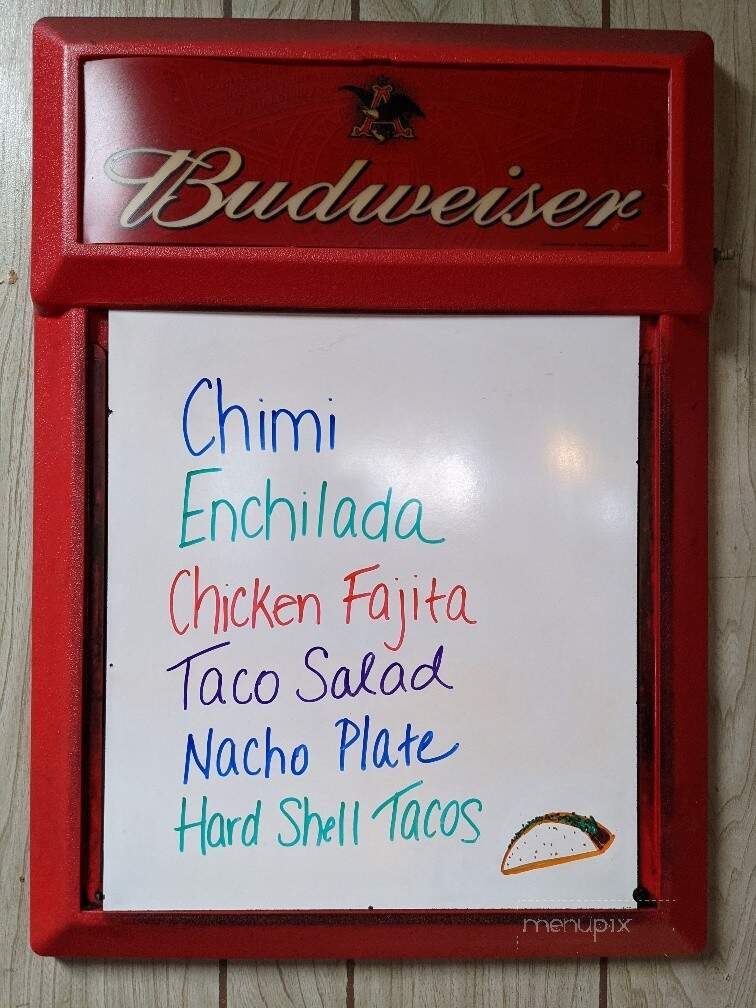 Budweiser
Chimi
Enchilada
Chicken Fajita
Taco Salad
Nacho Plate
Hard Shell Tacos
menupix